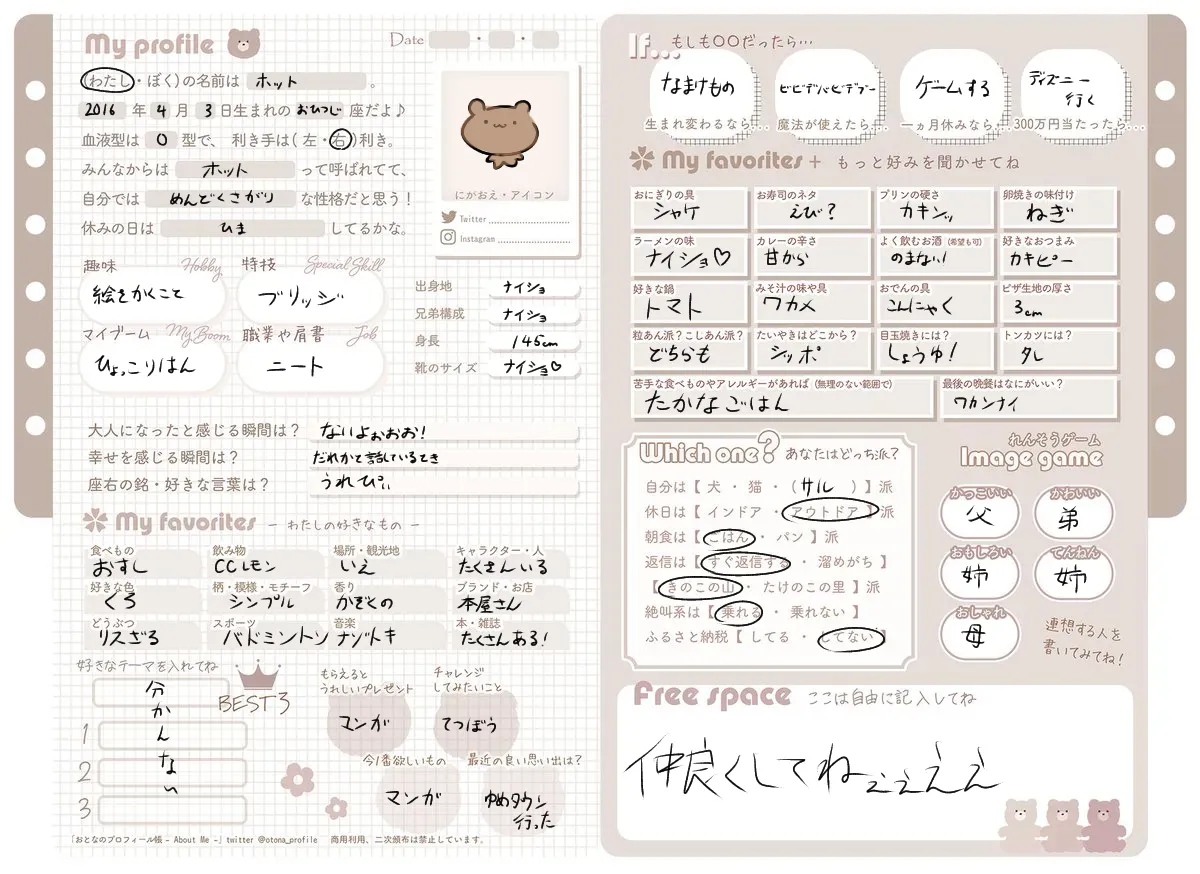 My profile
Date ・ ・
(わたし・ぼく)の名前は ホット 。
2016 年 4 月 3 日生まれの おひつじ 座だよ♪
血液型は O 型で、 利き手は(左・右)利き。
みんなからは ホット って呼ばれてて、
自分では めんどくさがり な性格だと思う!
休みの日は ひま してるかな。
にがおえ・アイコン
Twitter
Instagram
趣味 Hobby
絵をかくこと
特技 Special Skill
ブリッジ
マイブーム My Boom
ひょっこりはん
職業や肩書 Job
ニート
出身地 ナイショ
兄弟構成 ナイショ
身長 145cm
靴のサイズ ナイショ♡
大人になったと感じる瞬間は? ないよぉおお!
幸せを感じる瞬間は? だれかと話しているとき
座右の銘・好きな言葉は? うれぴぃ
My favorites - わたしの好きなもの -
食べもの おすし
飲み物 CCレモン
場所・観光地 いえ
キャラクター・人 たくさんいる
好きな色 くろ
柄・模様・モチーフ シンプル
香り かぞくの
ブランド・お店 本屋さん
どうぶつ リスざる
スポーツ バドミントン
音楽 ナゾトキ
本・雑誌 たくさんある!
好きなテーマを入れてね
BEST3
分かんない
1
2
3
もらえると
うれしいプレゼント
マンガ
チャレンジ
してみたいこと
てつぼう
今1番欲しいもの
マンガ
最近の良い思い出は?
ゆめタウン
行った
「おとなのプロフィール帳 - About Me -」twitter @otona_profile 商用利用、二次頒布は禁止しています。
If... もしも〇〇だったら…
なまけもの
生まれ変わるなら...
ビビデバビデブー
魔法が使えたら...
ゲームする
一ヵ月休みなら...
ディズニー
行く
300万円当たったら...
My favorites+ もっと好みを聞かせてね
おにぎりの具 シャケ
お寿司のネタ えび?
プリンの硬さ カチンッ
卵焼きの味付け ねぎ
ラーメンの味 ナイショ♡
カレーの辛さ 甘から
よく飲むお酒(希望も可) のまない!
好きなおつまみ カキピー
好きな鍋 トマト
みそ汁の味や具 ワカメ
おでんの具 こんにゃく
ピザ生地の厚さ 3cm
粒あん派?こしあん派? どちらも
たいやきはどこから? シッポ
目玉焼きには? しょうゆ!
トンカツには? タレ
苦手な食べものやアレルギーがあれば(無理のない範囲で) たかなごはん
最後の晩餐はなにがいい? ワカンナイ
Which one? あなたはどっち派?
自分は【 犬 ・ 猫 ・(サル )】派
休日は【 インドア ・ アウトドア 】派
朝食は【 ごはん ・ パン 】派
返信は【 すぐ返信する ・ 溜めがち 】
【 きのこの山 ・ たけのこの里 】派
絶叫系は【 乗れる ・ 乗れない 】
ふるさと納税【 してる ・ してない 】
れんそうゲーム
Image game
かっこいい 父
かわいい 弟
おもしろい 姉
てんねん 姉
おしゃれ 母
連想する人を
書いてみてね!
Free space ここは自由に記入してね
仲良くしてねぇぇええ